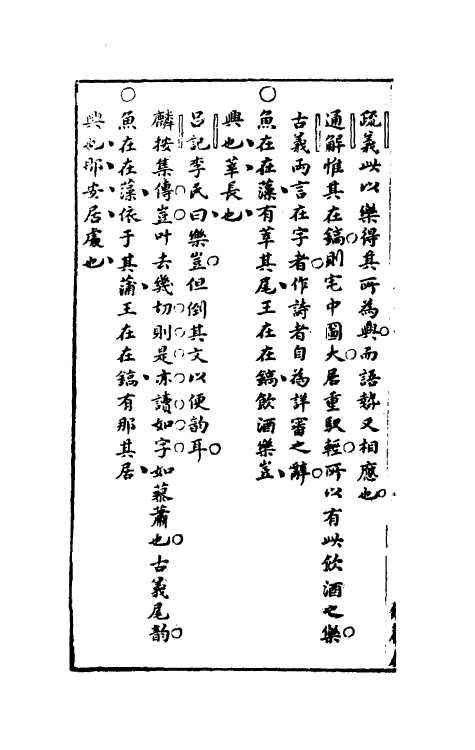 疏義此以樂得其所為興而語勢又相應也
通解惟其在鎬則宅中圖大居重馭輕所以有此飲酒之樂
古義兩言在字者作詩者自為詳審之辭
○魚在在藻有莘其尾王在在鎬飲酒樂豈
興也莘長也
呂記李氏曰樂豈但倒其文以便韵耳
麟按集傳豈叶去幾切則是亦讀如字如蓼蕭也古義尾韵
○魚在在藻依于其蒲王在在鎬有那其居
興也那安居處也